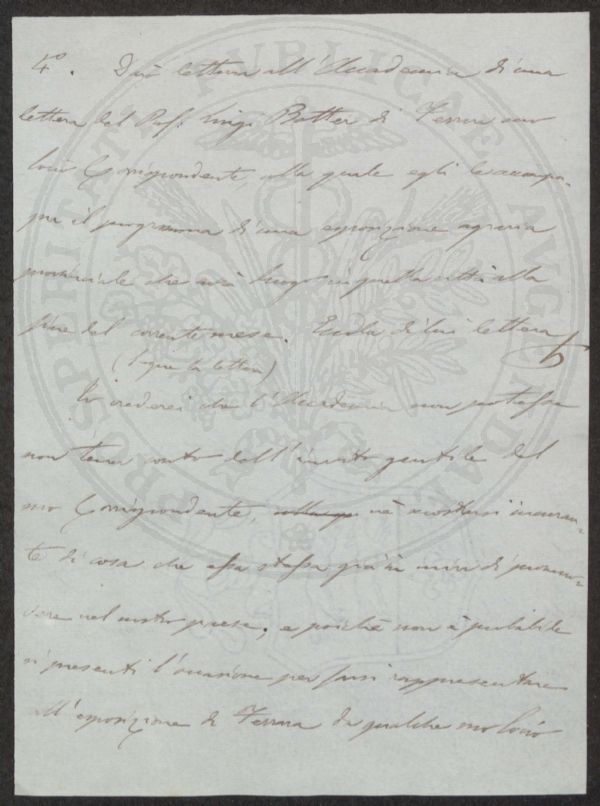 4°. Dirò lettura all'Accademia di una
lettera del Prof. Luigi Botter di Ferrara suo
Socio Corrispondente, alla quale egli le accompa-
gna il programma d'una esposizione agraria
provinciale che avrà luogo in quella città alla
fine del corrente mese. Eccola di lui lettera
(segue la lettera)
Io crederei che l'Accademia non potesse
non tener conto dell'invito gentile del
suo Corrispondente, nè mostrarsi incuran-
te di cosa che essa stessa già in mira di promo-
vere nel nostro paese; e poichè non è probabile
si presenti l'occasione per farsi rappresentare
all'esposizione di Ferrara da qualche suo Socio
PROSPERITATI PUBLICAE AUGENDAE